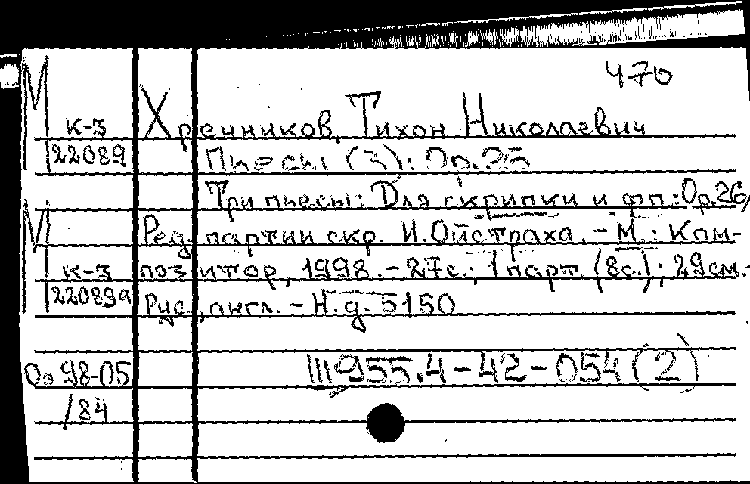 470
М
к-3
22089
Хренников, Тихон Николаевич
Пьесы (3): Ор.26
Три пьесы: Для скрипки и фп.: Ор.26/
М
Ред. партии скр. И.Ойстраха. - М.: Ком-
к-3
позитор, 1998. - 27с.; 1 парт. (8с.); 29см.-
22089а
Рус., англ. - Н.д. 5150
Оо 98-05
/84
Ш955.4-42-054(2)